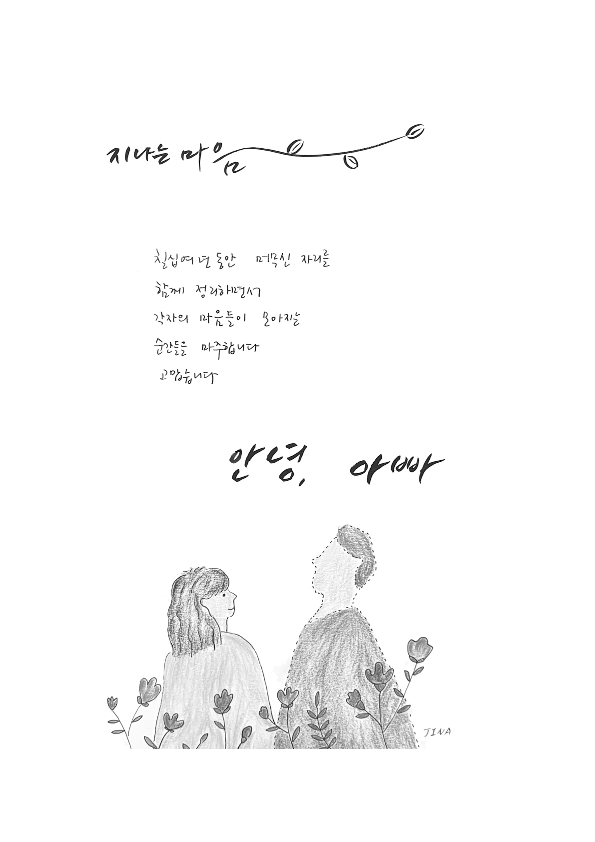 지나는 마음
칠십여 년 동안 머무신 자리를
함께 정리하면서
각자의 마음들이 모아지는
순간들을 마주합니다
고맙습니다
안녕, 아빠
JINA